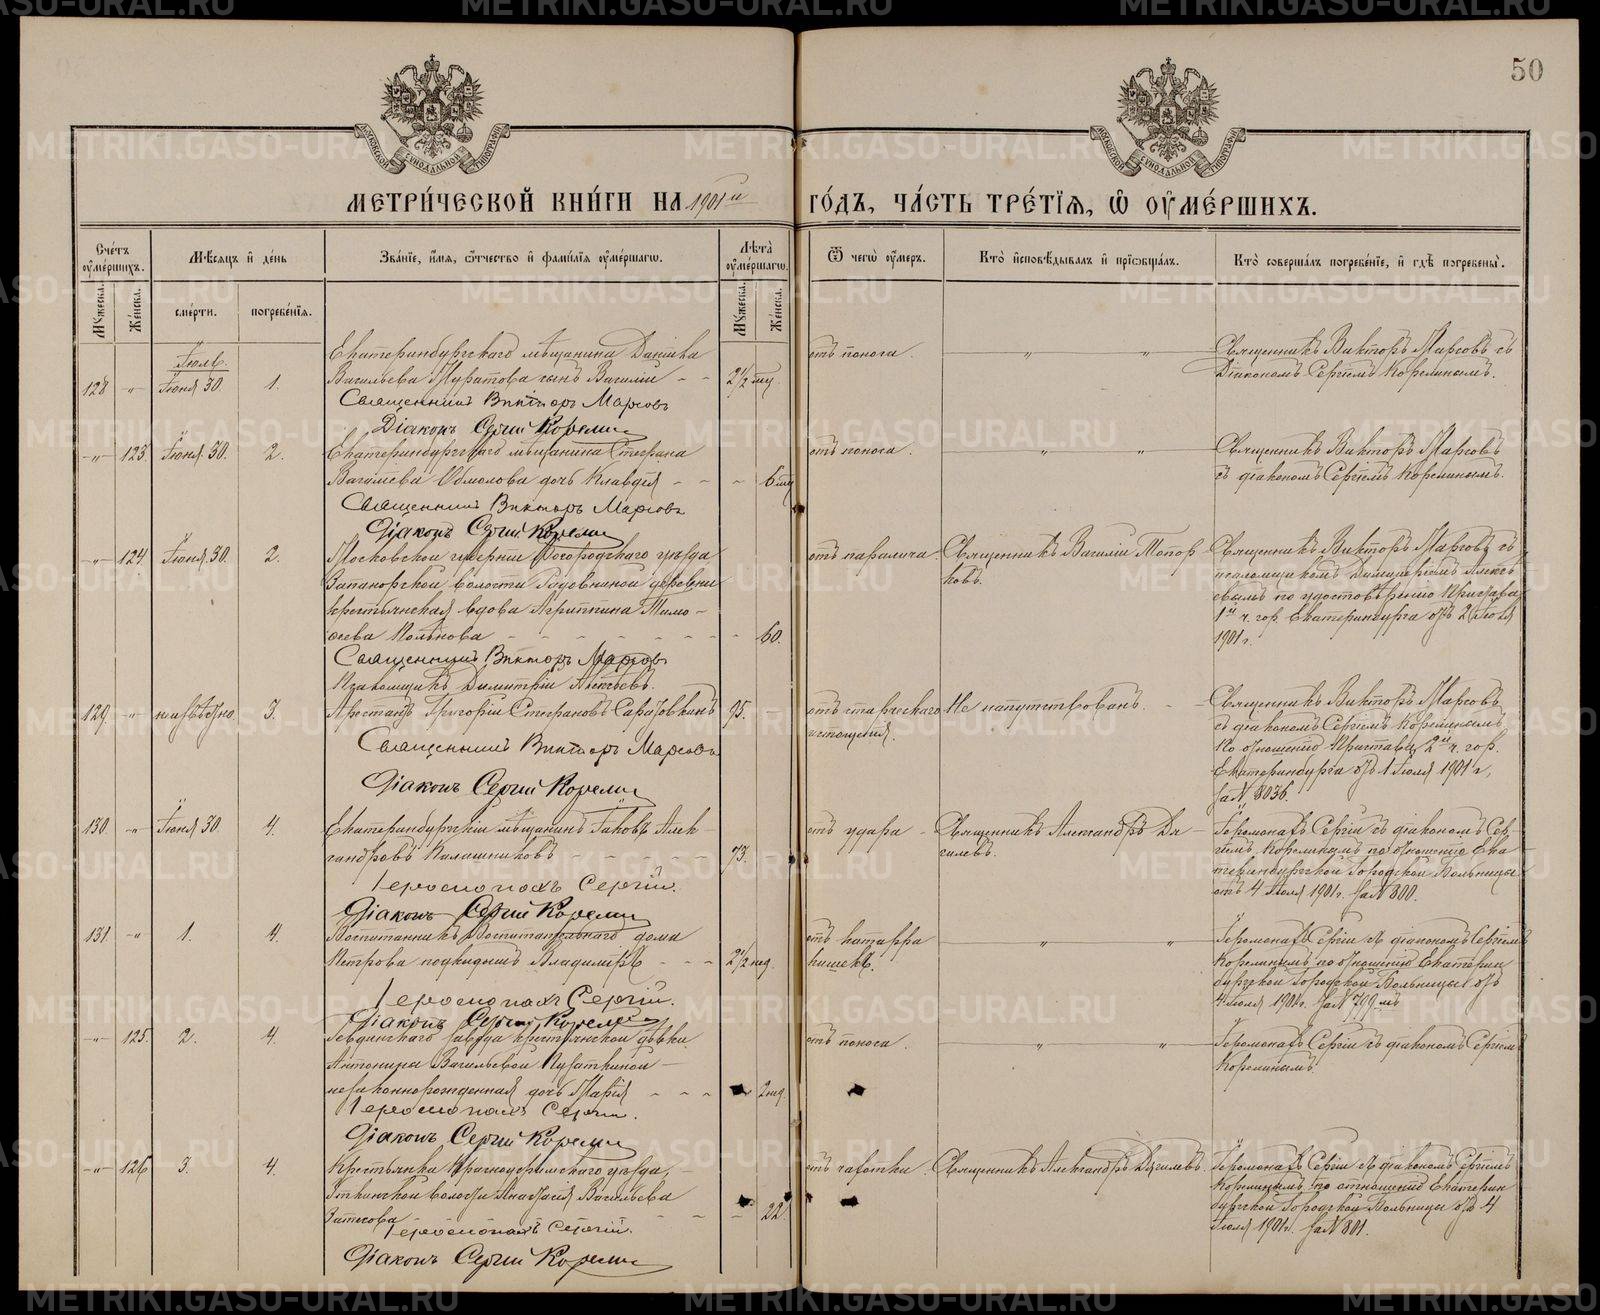 50
МЕТРИ́ЧЕСКОЙ КНИ́ГИ НА 1901й ГО́ДЪ, ЧА́СТЬ ТРЕ́ТІѦ, Ѿ ОУМЕ́РШИХЪ.
Сче́тъ оуме́ршихъ.
Мѣсяцъ и де́нь
Зва́ніе, и́мя, ѻтчество и фами́лія оуме́ршагѡ.
Лѣта̀ оуме́ршагѡ.
Ѿ чегѡ̀ оу́меръ.
Кто̀ исповѣ́дывалъ и прїѡбща́лъ.
Кто̀ соверша́лъ погребе́ніе, и гдѣ̀ погребены̀.
Мужеска.
Женска.
сме́рти.
погребе́нія.
Мужеска.
Женска.
Іюль.
Екатеринбургскаго мѣщанина Даніила
отъ поноса
Священникъ Викторъ Марсовъ съ
128 Іюня 30. 1.
Васильева Муратова сынъ Василій
2½
Діакономъ Сергіемъ Корелинымъ.
Священникъ Викторъ Марсовъ
Діаконъ Сергій Корелин
123 Іюня 30. 2.
Екатеринбургскаго мѣщанина Стефана
отъ поноса.
Священникъ Викторъ Марсовъ
дочь Клавдія
6
съ діакономъ Сергіемъ Корелинымъ.
Священникъ Викторъ Марсовъ
Діаконъ Сергій Корелин
124 Іюня 30. 2.
Московской губерніи Богородскаго уѣзда
отъ паралича.
Священникъ Василій Топор-
ковъ.
Священникъ Викторъ Марсовъ съ
волости деревни
псаломщикомъ Димитріемъ
крестьянская вдова Агриппина Тимо-
по удостовѣренію Пристава
ѳеева
60.
1й ч. гор. Екатеринбурга отъ 2 Іюля
1901 г.
Священникъ Викторъ Марсовъ
Псаломщикъ Димитрій
129 неизвѣстно. 3.
Арестантъ Григорій Стефановъ
95.
отъ старческаго
истощенія.
Не напутствованъ.
Священникъ Викторъ Марсовъ
съ діакономъ Сергіемъ Корелинымъ
Священникъ Викторъ Марсовъ
по отношенію Пристава 2й ч. гор.
Екатеринбурга отъ 1 Іюля 1901 г.
Діаконъ Сергій Корелин
за № 8036.
130. Іюня 30. 4.
Екатеринбургскій мѣщанинъ Іаковъ Алек-
отъ удара
Священникъ Александръ Дя-
гилевъ.
Іеромонахъ Сергій съ діакономъ Сер-
сандровъ Калашниковъ
73.
гіемъ Корелинымъ по отношенію Ека-
теринбургской Городской Больницы
Іеромонахъ Сергій.
отъ 4 Іюля 1901 г. за № 800.
Діаконъ Сергій Корелин
131. 1. 4.
Воспитанникъ Воспитательнаго дома
отъ катарра
кишекъ.
Іеромонахъ Сергій съ діакономъ Сергіемъ
Петрова подкидышъ Владиміръ
2½ нед.
Корелинымъ по отношенію Екатерин-
бургской Городской Больницы отъ
Іеромонахъ Сергій.
4 Іюля 1901 г. за № 799
Діаконъ Сергій Корелин
125. 2. 4.
завода крестьянской дѣвки
отъ поноса.
Іеромонахъ Сергій съ діакономъ Сергіемъ
Антонины Васильевой
Корелинымъ.
незаконнорожденная дочь Марія
2 нед.
Іеромонахъ Сергій.
Діаконъ Сергій Корелин
126 3. 4.
Крестьянка Красноуфимскаго уѣзда,
отъ чахотки.
Священникъ Александръ Дягилевъ.
Іеромонахъ Сергій съ діакономъ Сергіемъ
Уткинской волости Анастасія Васильева
22.
Корелинымъ по отношенію Екатерин-
бургской Городской Больницы отъ 4
Іеромонахъ Сергій.
Іюля 1901 г. за № 801.
Діаконъ Сергій Корелин
METRIKI.GASO-URAL.RU